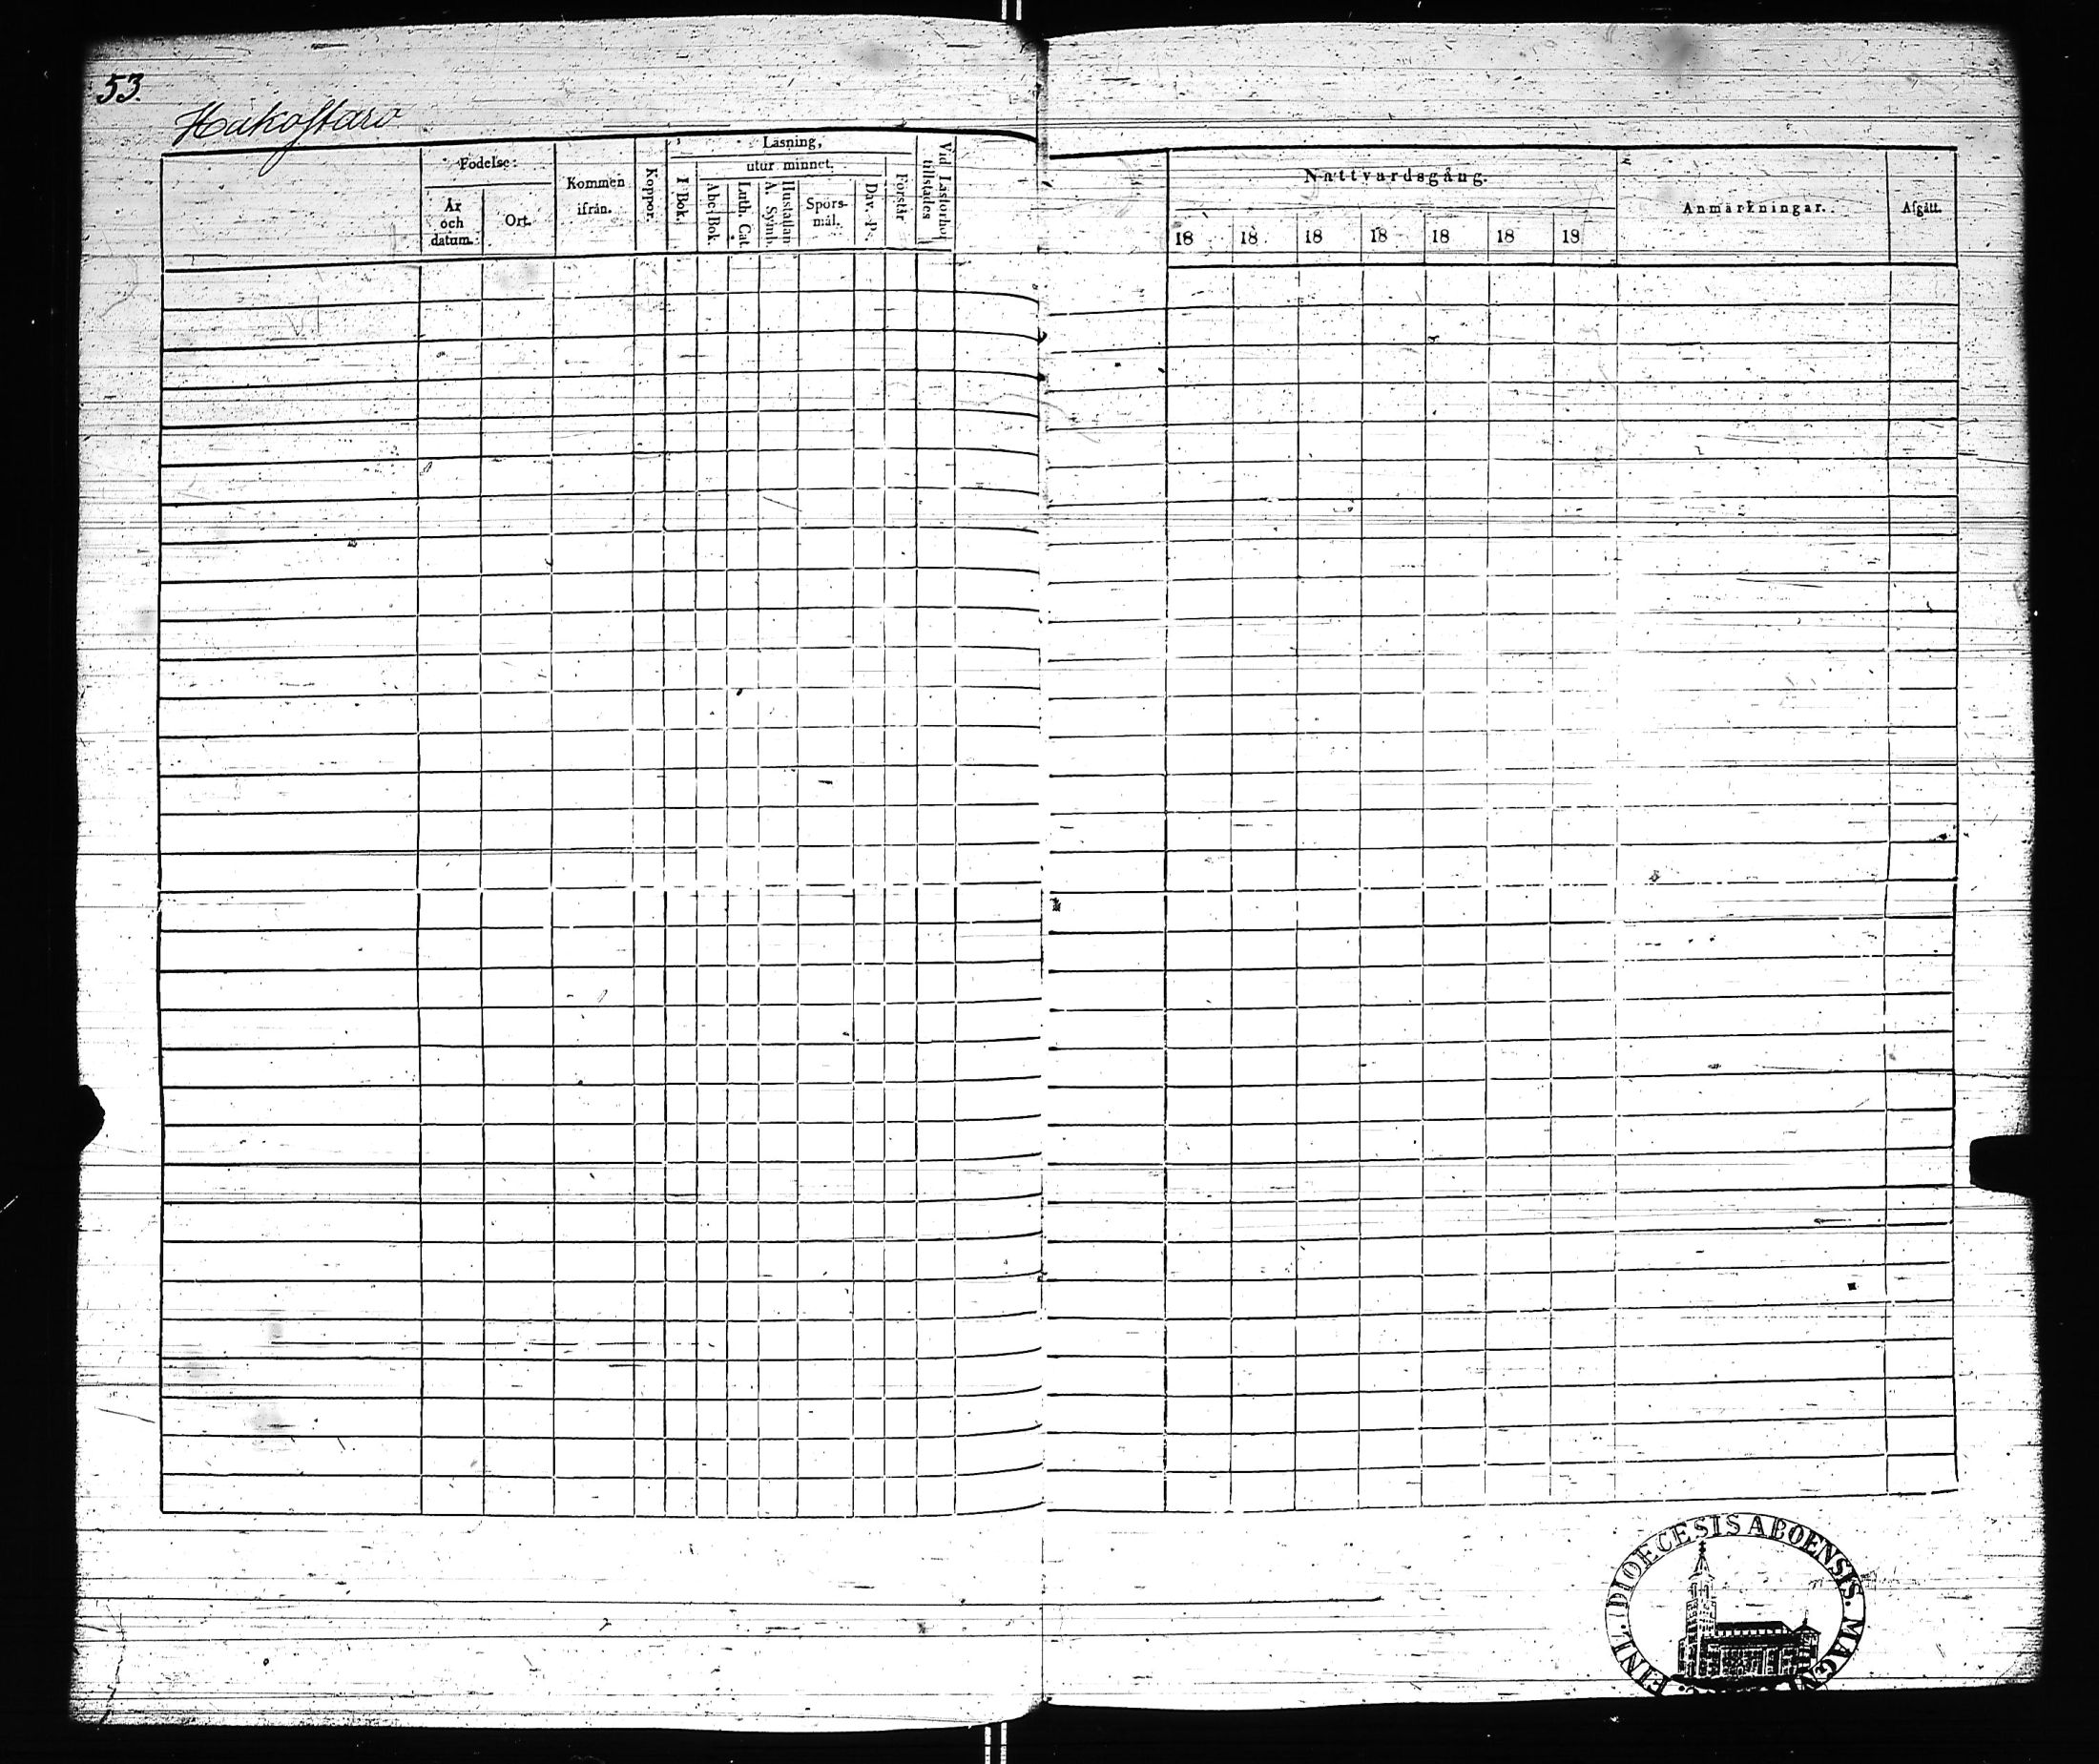 53.
Hakostaro
Födelse:
År och datum.
Ort.
Kommen ifrån.
Koppor.
Läsning,
utur minnet.
I Bok.
Abc-Bok.
Luth. Cat.
Hustaflan A. Symb.
Spörs-mål.
Dav. P.
Förstår
Vid Läsförhör tillstädes
Nattvardsgång.
18 18 18 18 18 18 18
Anmärkningar.
Afgått.
DIOECESIS ABOENSIS. MAG